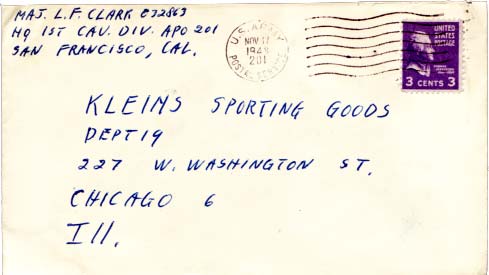 MAJ. L.F. CLARK O32863
HQ 1ST CAV. DIV. APO 201
SAN FRANCISCO, CAL.
U.S. ARMY
NOV 11
1948
201
POSTAL SERVICE
UNITED
STATES
POSTAGE
3 CENTS 3
KLEINS SPORTING GOODS
DEPT 19
227 W. WASHINGTON ST.
CHICAGO 6
Ill.